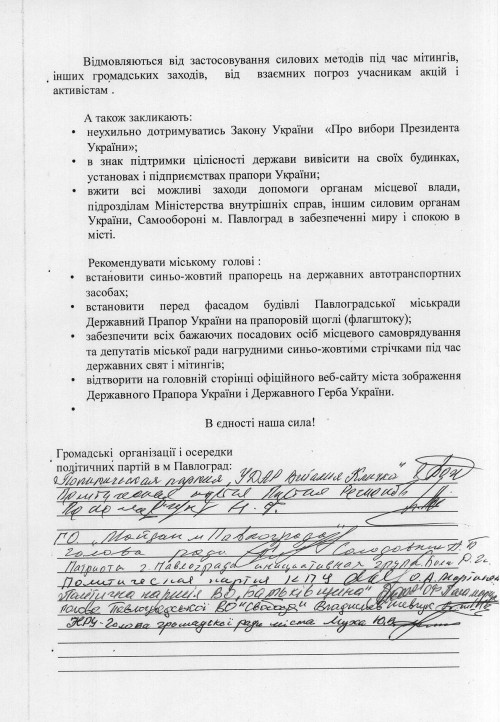 Відмовляються від застосовування силових методів під час мітингів,
інших громадських заходів, від взаємних погроз учасникам акцій і
активістам .
А також закликають:
• неухильно дотримуватись Закону України «Про вибори Президента
України»;
• в знак підтримки цілісності держави вивісити на своїх будинках,
установах і підприємствах прапори України;
• вжити всі можливі заходи допомоги органам місцевої влади,
підрозділам Міністерства внутрішніх справ, іншим силовим органам
України, Самообороні м. Павлоград в забезпеченні миру і спокою в
місті.
Рекомендувати міському голові :
• встановити синьо-жовтий прапорець на державних автотранспортних
засобах;
• встановити перед фасадом будівлі Павлоградської міськради
Державний Прапор України на прапоровій щоглі (флагштоку);
• забезпечити всіх бажаючих посадових осіб місцевого самоврядування
та депутатів міської ради нагрудними синьо-жовтими стрічками під час
державних свят і мітингів;
• відтворити на головній сторінці офіційного веб-сайту міста зображення
Державного Прапора України і Державного Герба України.
•
В єдності наша сила!
Громадські організації і осередки
політичних партій в м Павлоград:
Политическая партия "УДАР Виталия Кличко"
Политическая партия Партия
ГО "Майдан м Павлограда"
голова ради
Патриоты г Павлограда инициативная группа
Политическая партия КПУ
Політична партія ВО "Батьківщина"
голова Павлоградської ВО "Свобода" Владислав
НРУ - Голова громадської ради міста Муха Ю.В.